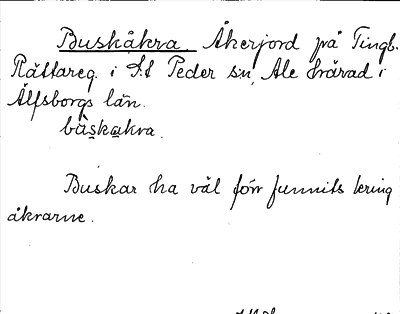 Buskåkra. Åkerjord på Tingb.
Rättareg. i S:t Peder sn, Ale härad i
Älfsborgs län.
båskakra.
Buskar ha väl förr funnits kring
åkrarne.